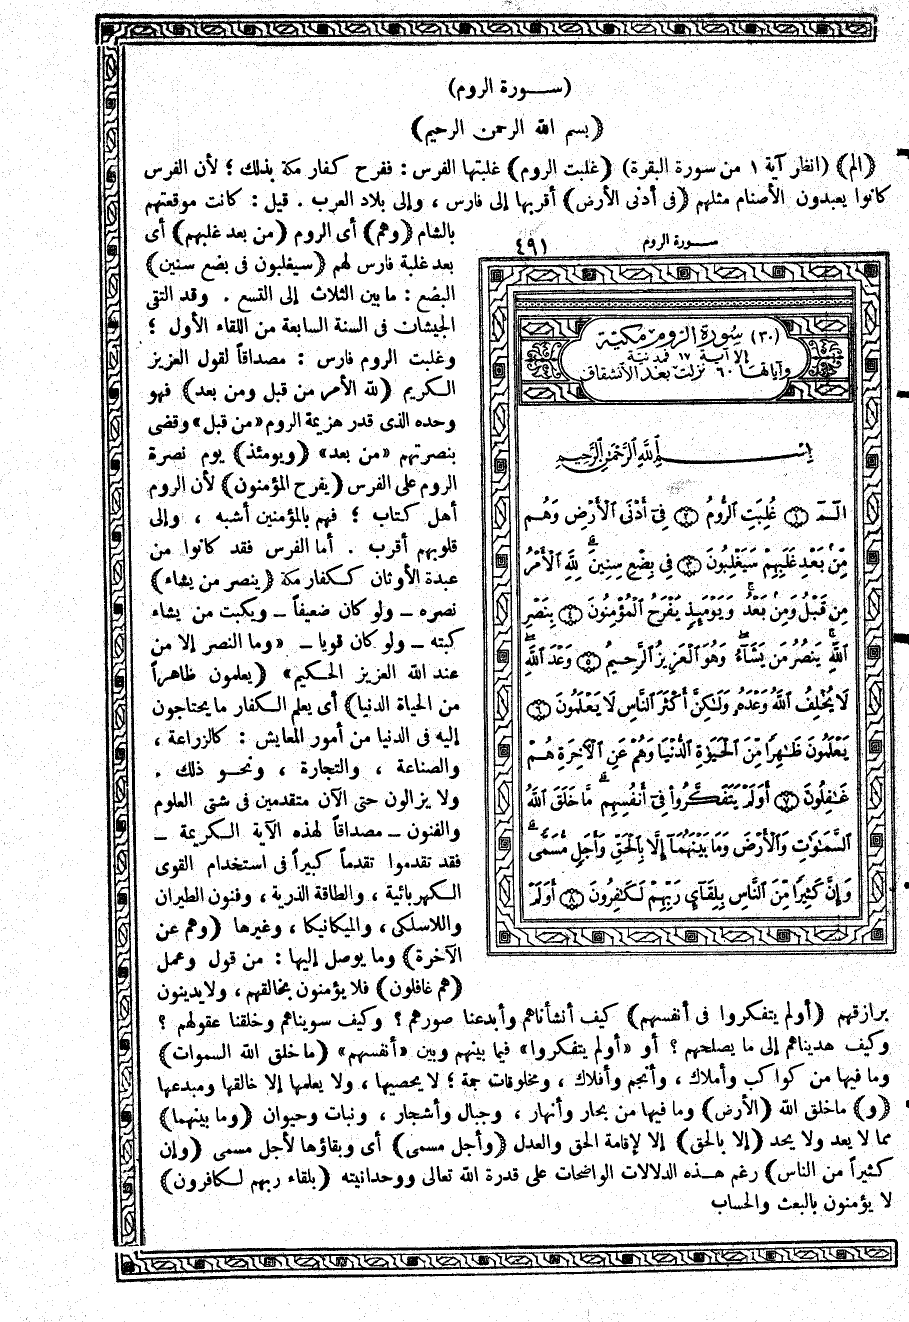 (ســورة الروم)
(بسم الله الرحمن الرحيم)
(الم) (انظر آية ١ من سورة البقرة) (غلبت الروم) غلبتها الفرس : ففرح كفار مكة بذلك ؛ لأن الفرس
كانوا يعبدون الأصنام مثلهم (فى أدنى الأرض) أقربها إلى فارس ، وإلى بلاد العرب . قيل : كانت موقعتهم
بالشام (وهم) أى الروم (من بعد غلبهم) أى
بعد غلبة فارس لهم (سيغلبون فى بضع سنين)
البضع : ما بين الثلاث إلى التسع . وقد التقى
الجيشان فى السنة السابعة من اللقاء الأول ؛
وغلبت الروم فارس : مصداقاً لقول العزيز
الكريم (لله الأمر من قبل ومن بعد) فهو
وحده الذى قدر هزيمة الروم «من قبل» وقضى
بنصرتهم «من بعد» (ويومئذ) يوم نصرة
الروم على الفرس (يفرح المؤمنون) لأن الروم
أهل كتاب ؛ فهم بالمؤمنين أشبه ، وإلى
قلوبهم أقرب . أما الفرس فقد كانوا من
عبدة الأوثان ككفار مكة (ينصر من يشاء)
نصره ــ ولو كان ضعيفاً ــ ويكبت من يشاء
كبته ــ ولو كان قويا ــ «وما النصر إلا من
عند الله العزيز الحكيم» (يعلمون ظاهراً
من الحياة الدنيا) أى يعلم الكفار ما يحتاجون
إليه فى الدنيا من أمور المعايش : كالزراعة ،
والصناعة ، والتجارة ، ونحو ذلك .
ولا يزالون حتى الآن متقدمين فى شتى العلوم
والفنون ــ مصداقاً لهذه الآية الكريمة ــ
فقد تقدموا تقدماً كبيراً فى استخدام القوى
الكهربائية ، والطاقة الذرية ، وفنون الطيران
واللاسلكى ، والميكانيكا ، وغيرها (وهم عن
الآخرة) وما يوصل إليها : من قول وعمل
(هم غافلون) فلا يؤمنون بخالقهم ، ولا يدينون
سـورة الروم ٤٩١
(٣٠) سورة الروم مكية
إلا آية ١٧ فمدنية
وآياتها ٦٠ نزلت بعد الانشقاق
بِسْمِ ٱللَّهِ ٱلرَّحْمَٰنِ ٱلرَّحِيمِ
الٓمٓ ۝١ غُلِبَتِ ٱلرُّومُ ۝٢ فِىٓ أَدْنَى ٱلْأَرْضِ وَهُم
مِّنۢ بَعْدِ غَلَبِهِمْ سَيَغْلِبُونَ ۝٣ فِى بِضْعِ سِنِينَ ۗ لِلَّهِ ٱلْأَمْرُ
مِن قَبْلُ وَمِنۢ بَعْدُ ۚ وَيَوْمَئِذٍ يَفْرَحُ ٱلْمُؤْمِنُونَ ۝٤ بِنَصْرِ
ٱللَّهِ ۚ يَنصُرُ مَن يَشَآءُ ۖ وَهُوَ ٱلْعَزِيزُ ٱلرَّحِيمُ ۝٥ وَعْدَ ٱللَّهِ ۖ
لَا يُخْلِفُ ٱللَّهُ وَعْدَهُۥ وَلَٰكِنَّ أَكْثَرَ ٱلنَّاسِ لَا يَعْلَمُونَ ۝٦
يَعْلَمُونَ ظَٰهِرًا مِّنَ ٱلْحَيَوٰةِ ٱلدُّنْيَا وَهُمْ عَنِ ٱلْأٓخِرَةِ هُمْ
غَٰفِلُونَ ۝٧ أَوَلَمْ يَتَفَكَّرُوا۟ فِىٓ أَنفُسِهِم ۗ مَّا خَلَقَ ٱللَّهُ
ٱلسَّمَٰوَٰتِ وَٱلْأَرْضَ وَمَا بَيْنَهُمَآ إِلَّا بِٱلْحَقِّ وَأَجَلٍ مُّسَمًّى ۗ
وَإِنَّ كَثِيرًا مِّنَ ٱلنَّاسِ بِلِقَآئِ رَبِّهِمْ لَكَٰفِرُونَ ۝٨ أَوَلَمْ
برازقهم (أولم يتفكروا فى أنفسهم) كيف أنشأناهم وأبدعنا صورهم ؟ وكيف سويناهم وخلقنا عقولهم ؟
وكيف هديناهم إلى ما يصلحهم ؟ أو «أولم يتفكروا» فيما بينهم وبين «أنفسهم» (ما خلق الله السموات)
وما فيها من كواكب وأملاك ، وأنجم وأفلاك ، ومخلوقات جمة ؛ لا يحصيها ، ولا يعلمها إلا خالقها ومبدعها
(و) ما خلق الله (الأرض) وما فيها من بحار وأنهار ، وجبال وأشجار ، ونبات وحيوان (وما بينهما)
مما لا يعد ولا يحد (إلا بالحق) إلا لإقامة الحق والعدل (وأجل مسمى) أى وبقاؤها لأجل مسمى (وإن
كثيراً من الناس) رغم هـذه الدلالات الواضحات على قدرة الله تعالى ووحدانيته (بلقاء ربهم لكافرون)
لا يؤمنون بالبعث والحساب